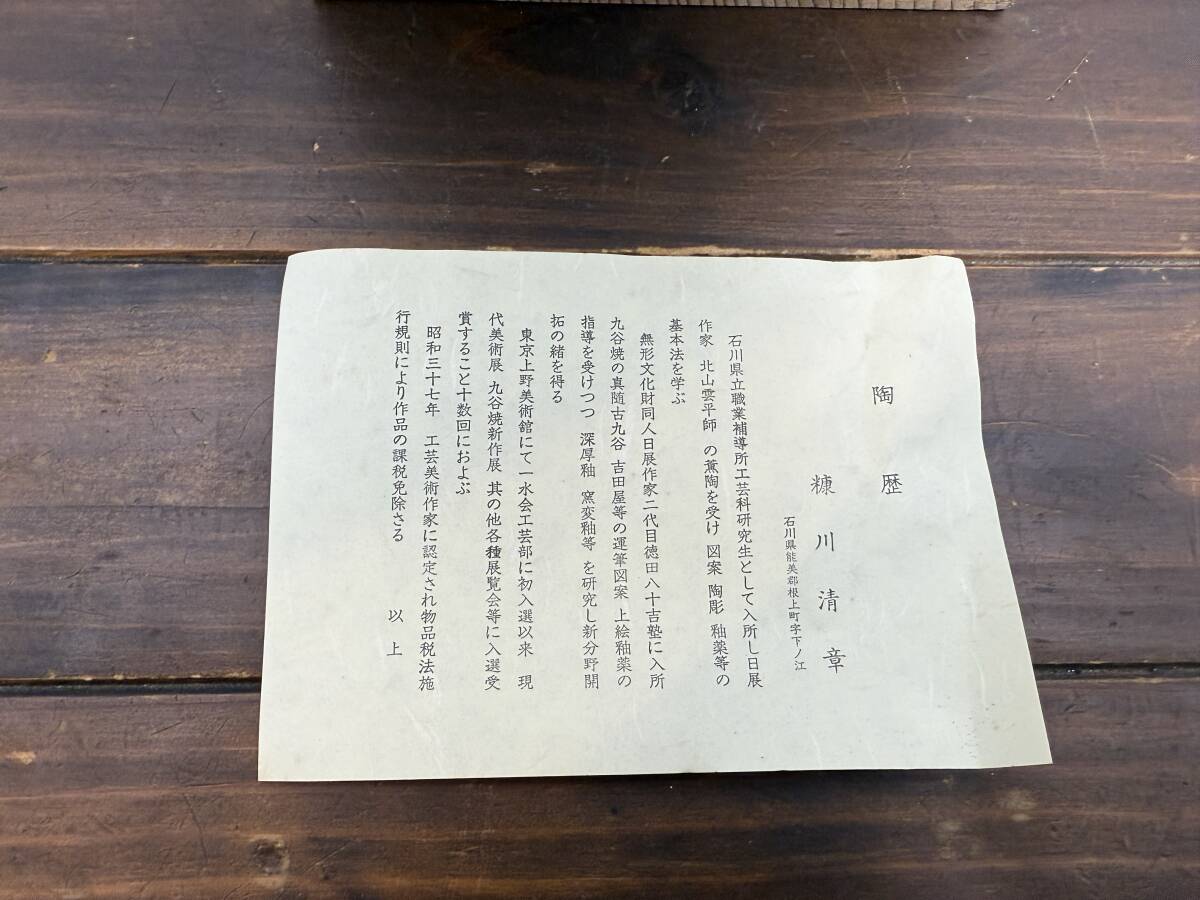 陶歴
糠川清章
石川県能美郡根上町字下ノ江
石川県立職業補導所工芸科研究生として入所し日展
作家 北山雲平師 の薫陶を受け 図案 陶彫 釉薬等の
基本法を学ぶ
無形文化財同人日展作家二代目徳田八十吉塾に入所
九谷焼の真随古九谷 吉田屋等の運筆図案 上絵釉薬の
指導を受けつつ 深厚釉 窯変釉等 を研究し新分野開
拓の緒を得る
東京上野美術館にて一水会工芸部に初入選以来 現
代美術展 九谷焼新作展 其の他各種展覧会等に入選受
賞すること十数回におよぶ
昭和三十七年 工芸美術作家に認定され物品税法施
行規則により作品の課税免除さる
以上